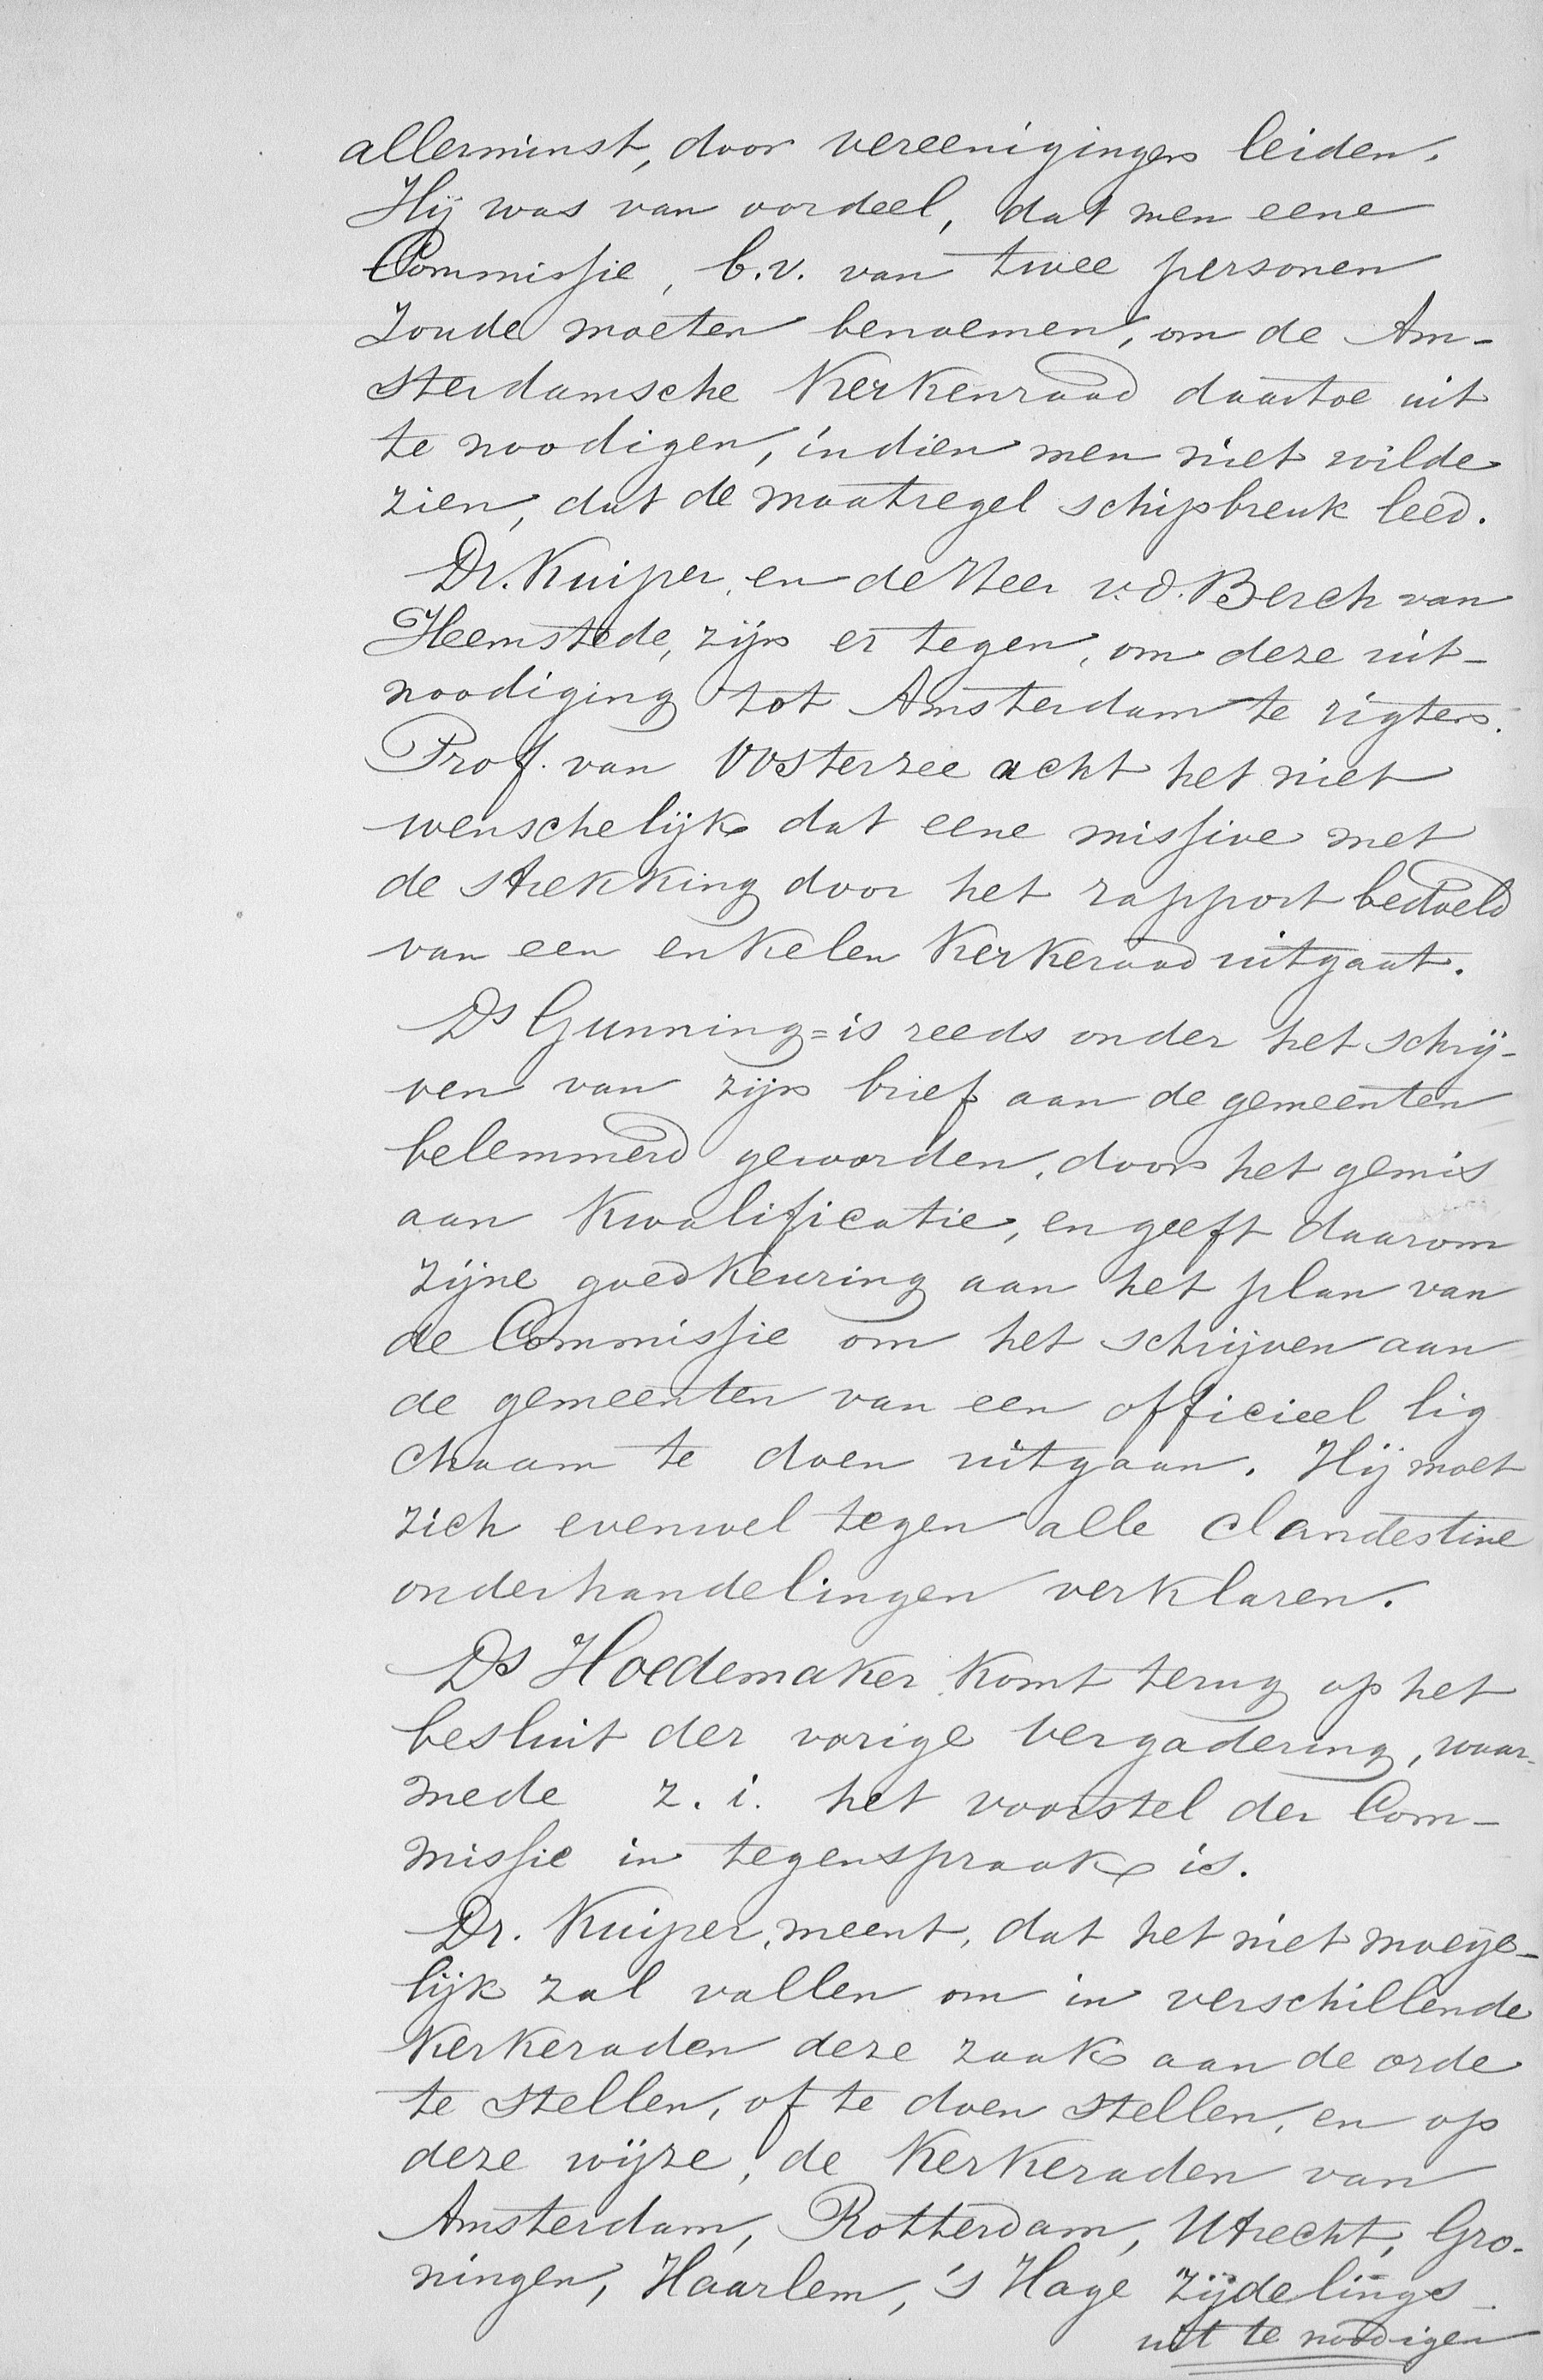 allerminst, door vereenigingen leiden.
Hij was van oordeel, dat men eene
Commissie, b.v. van twee personen
zoude moeten benoemen, om de Am-
sterdamsche Kerkenraad daartoe uit
te noodigen, indien men niet wilde
zien, dat de maatregel schipbreuk leed.
Dr. Kuiper, en de Heer v.d. Berch van
Heemstede, zijn er tegen, om deze uit-
noodiging tot Amsterdam te rigten.
Prof. van Oosterzee acht het niet
wenschelijk dat eene missive met
de strekking door het rapport bedoeld
van een enkelen Kerkeraad uitgaat.
Ds Gunning = is reeds onder het schrij-
ven van zijn brief aan de gemeenten
belemmerd geworden, door het gemis
aan Kwalificatie, en geeft daarom
zijne goedkeuring aan het plan van
de Commissie om het schrijven aan
de gemeenten van een officieel lig
chaam te doen uitgaan. Hij moet
zich evenwel tegen alle clandestine
onderhandelingen verklaren.
Ds Hoedemaker komt terug op het
besluit der vorige vergadering, waar-
mede z.i. het voorstel der Com-
missie in tegenspraak is.
Dr. Kuiper, meent, dat het niet moeije-
lijk zal vallen om in verschillende
Kerkeraden deze zaak aan de orde
te stellen, of te doen stellen, en op
deze wijze, de Kerkeraden van
Amsterdam, Rotterdam, Utrecht, Gro-
ningen, Haarlem, 's Hage zijdelings
uit te noodigen